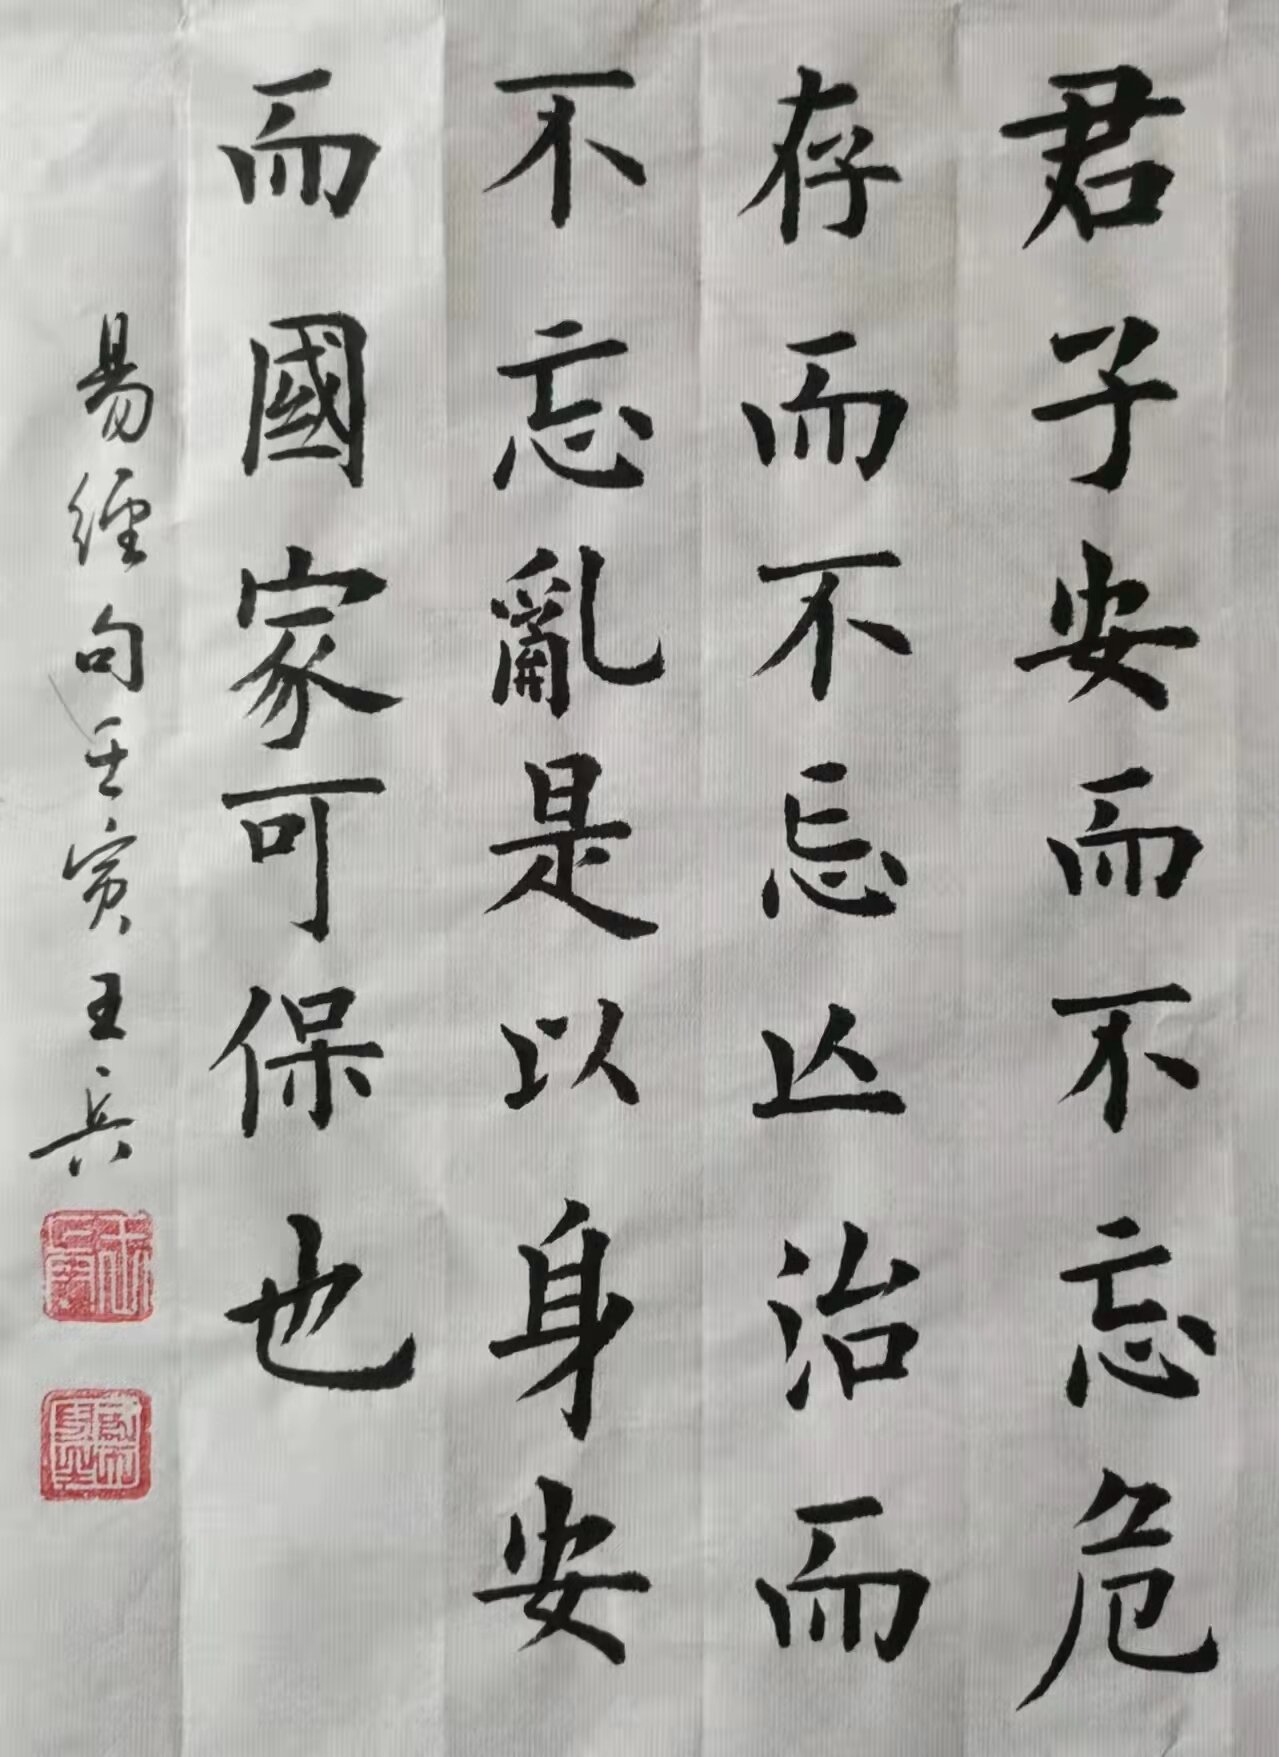 君子安而不忘危
存而不忘亾治而
不忘亂是以身安
而國家可保也
易經句壬寅王兵